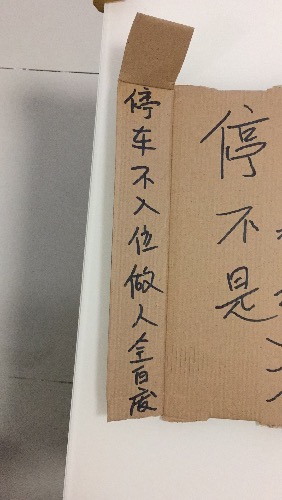 停车不入位做人全百度
停不是